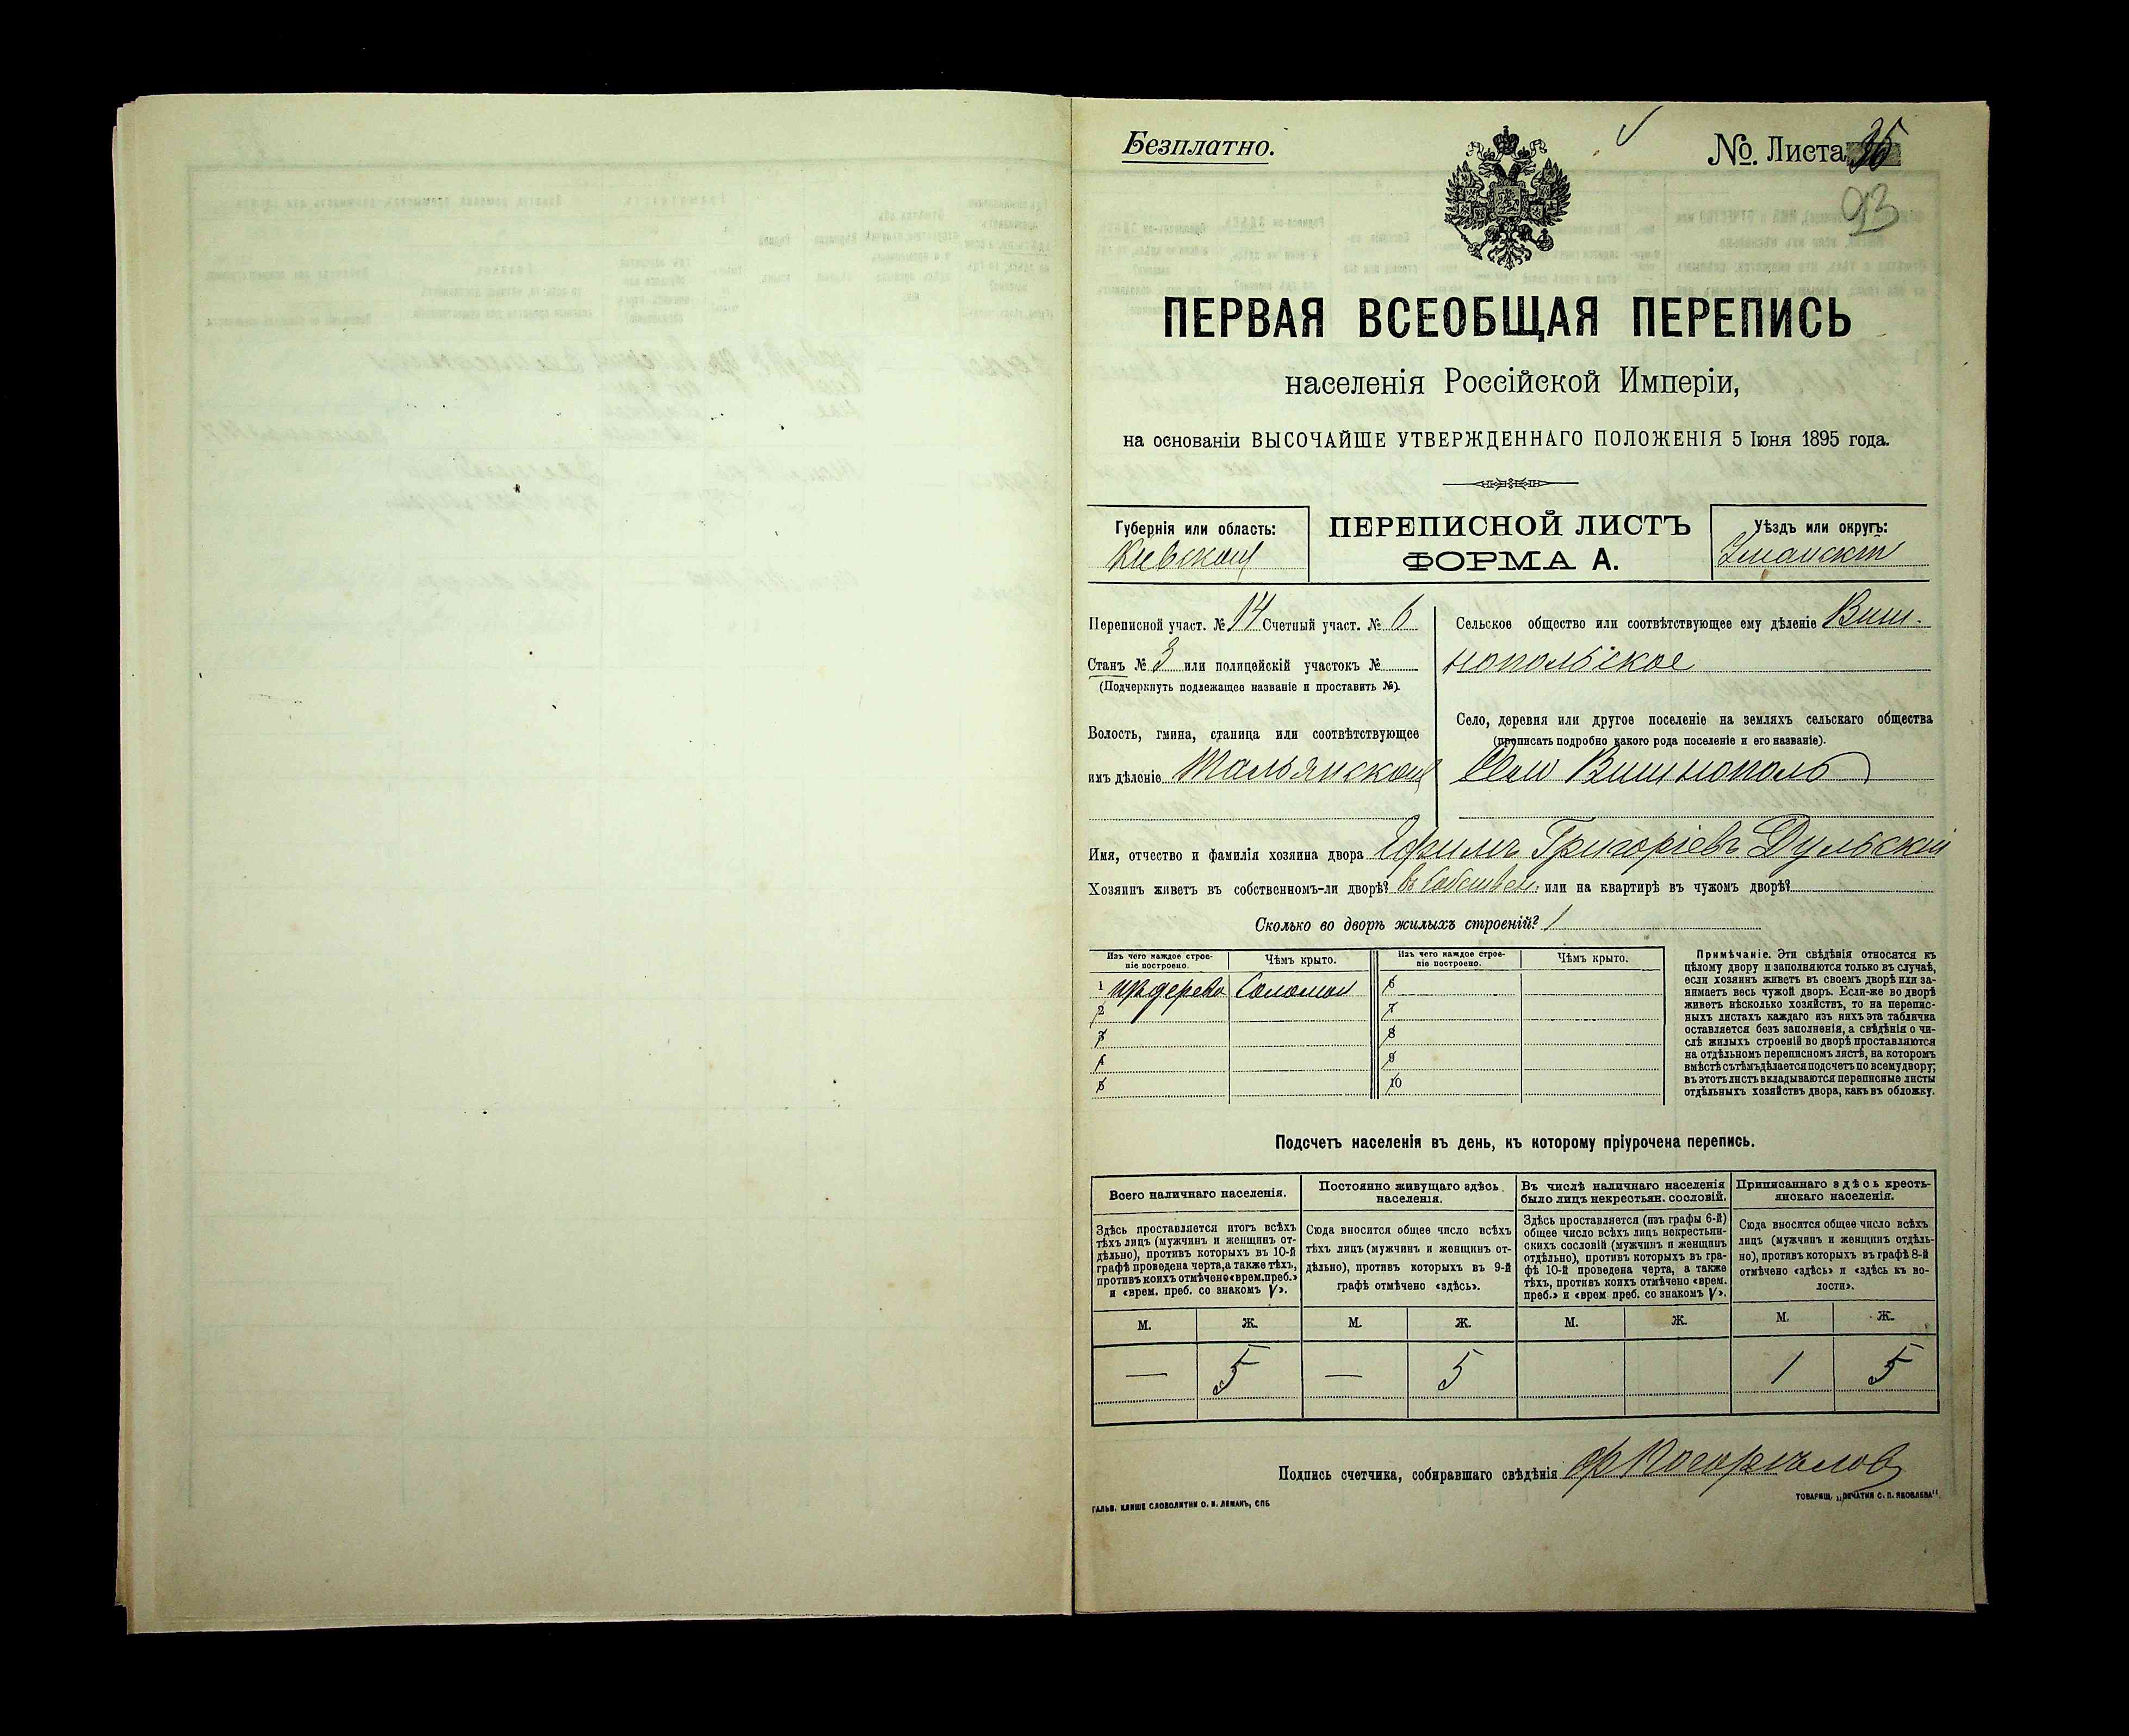 Безплатно.
№. Листа 35
93
ПЕРВАЯ ВСЕОБЩАЯ ПЕРЕПИСЬ
населенія Россійской Имперіи,
на основаніи ВЫСОЧАЙШЕ УТВЕРЖДЕННАГО ПОЛОЖЕНІЯ 5 Іюня 1895 года.
Губернія или область:
Кіевской
ПЕРЕПИСНОЙ ЛИСТЪ
ФОРМА А.
Уѣздъ или округъ:
Уманскій
Переписной участ. № 14 Счетный участ. № 6
Станъ № 3 или полицейскій участокъ №
(Подчеркнуть подлежащее названіе и проставить №).
Волость, гмина, станица или соотвѣтствующее
имъ дѣленіе Тальянской
Сельское общество или соотвѣтствующее ему дѣленіе Виш-
нопольское
Село, деревня или другое поселеніе на земляхъ сельскаго общества
(прописать подробно какого рода поселеніе и его названіе).
Село Вишнополь
Имя, отчество и фамилія хозяина двора Ефимъ Григоріевъ Дульскій
Хозяинъ живетъ въ собственномъ-ли дворѣ? въ собствен. или на квартирѣ въ чужомъ дворѣ?
Сколько во дворѣ жилыхъ строеній? 1
Изъ чего каждое строе-
ніе построено.
Чѣмъ крыто.
Изъ чего каждое строе-
ніе построено.
Чѣмъ крыто.
1 изъ дерева Соломой 6
2 7
3 8
4 9
5 10
Примѣчаніе. Эти свѣдѣнія относятся къ
цѣлому двору и заполняются только въ случаѣ,
если хозяинъ живетъ въ своемъ дворѣ или за-
нимаетъ весь чужой дворъ. Если-же во дворѣ
живетъ нѣсколько хозяйствъ, то на перепис-
ныхъ листахъ каждаго изъ нихъ эта табличка
оставляется безъ заполненія, а свѣдѣнія о чи-
слѣ жилыхъ строеній во дворѣ проставляются
на отдѣльномъ переписномъ листѣ, на которомъ
вмѣстѣ съ тѣмъ дѣлается подсчетъ по всему двору;
въ этотъ листъ вкладываются переписные листы
отдѣльныхъ хозяйствъ двора, какъ въ обложку.
Подсчетъ населенія въ день, къ которому пріурочена перепись.
Всего наличнаго населенія.
Здѣсь проставляется итогъ всѣхъ
тѣхъ лицъ (мужчинъ и женщинъ от-
дѣльно), противъ которыхъ въ 10-й
графѣ проведена черта, а также тѣхъ,
противъ коихъ отмѣчено «врем. преб.»
и «врем. преб. со знакомъ V».
Постоянно живущаго здѣсь
населенія.
Сюда вносится общее число всѣхъ
тѣхъ лицъ (мужчинъ и женщинъ от-
дѣльно), противъ которыхъ въ 9-й
графѣ отмѣчено «здѣсь».
Въ числѣ наличнаго населенія
было лицъ некрестьян. сословій.
Здѣсь проставляется (изъ графы 6-й)
общее число всѣхъ лицъ некрестьян-
скихъ сословій (мужчинъ и женщинъ
отдѣльно), противъ которыхъ въ гра-
фѣ 10-й проведена черта, а также
тѣхъ, противъ коихъ отмѣчено «врем.
преб.» и «врем преб. со знакомъ V».
Приписаннаго здѣсь кресть-
янскаго населенія.
Сюда вносится общее число всѣхъ
лицъ (мужчинъ и женщинъ отдѣль-
но), противъ которыхъ въ графѣ 8-й
отмѣчено «здѣсь» и «здѣсь къ во-
лости».
М. Ж. М. Ж. М. Ж. М. Ж.
— 5 — 5 1 5
Подпись счетчика, собиравшаго свѣдѣнія
ГАЛЬВ. КЛИШЕ СЛОВОЛИТНИ О. И. ЛЕМАНЪ, СПБ
ТОВАРИЩ. „ПЕЧАТНЯ С. П. ЯКОВЛЕВА“.